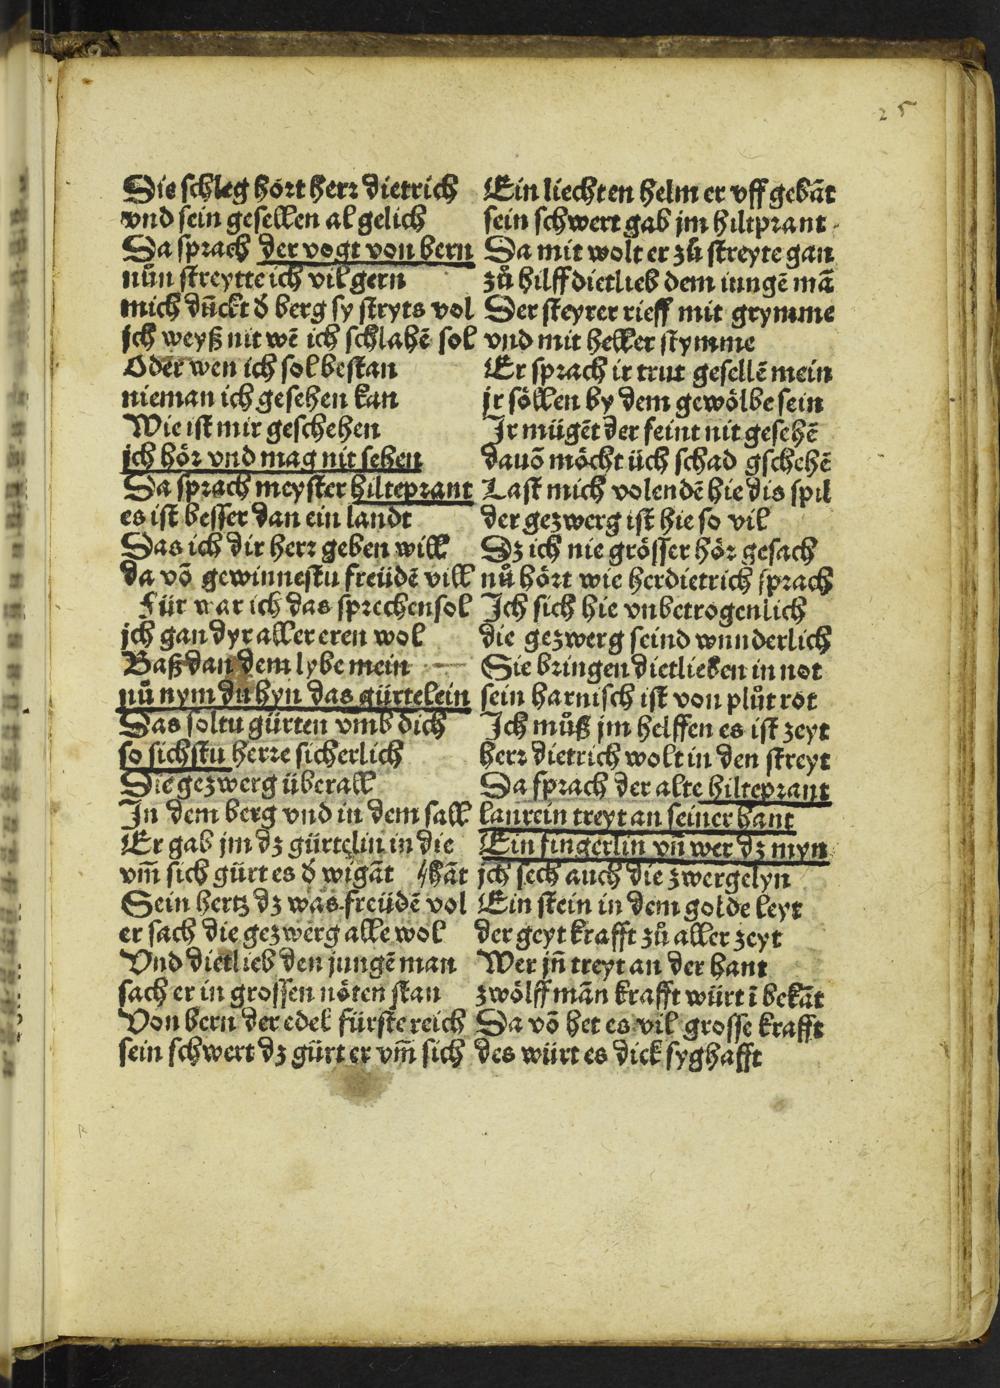 25
Die schleg hört herr dietrich
vnd sein gesellen al gelich
Da sprach der vogt von bern
nůn streytte ich vil gern
mich dũckt ď berg sy stryts vol
jch weyß nit wē ich schlahē sol
Oder wen ich sol bestan
nieman ich gesehen kan
Wie ist mir geschehen
ich hör vnd mag nit sehen
Da sprach meyster hilteprant
es ist besser dan ein landt
Das ich dir herr geben will
da võ gewinnestu freüdē vill
Für war ich das sprechen sol
jch gan dyr aller eren wol
Baß dan dem lybe mein
nů nym du hyn das gürtelein
Das soltu gürten vmb dich
so sichstu herre sicherlich
Die gezwerg überall
In dem berg vnd in dem sall
Er gab jm dz gürtelin in die
vm̃ sich gürt es ď wigāt //hāt
Sein hertz dz was freüdē vol
er sach die gezwerg alle wol
Vnd dietlieb den jungē man
sach er in grossen nöten stan
Von bern der edel fürste reich
sein schwert dz gürt er vm̃ sich
Ein liechten helm er vff gebāt
sein schwert gab jm hiltprant
Da mit wolt er zů streyte gan
zů hilff dietlieb dem iungē mā
Der steyrer rieff mit grymme
vnd mit heller stymme
Er sprach ir trut gesellē mein
jr söllen by dem gewölbe sein
Ir mügēt der feint nit gesehē
dauō möcht üch schad gschehē
Last mich volendē hie dis spil
der gezwerg ist hie so vil
Dz ich nie grösser hör gesach
nů hört wie her dietrich sprach
Ich sich hie vnbetrogenlich
die gezwerg seind wunderlich
Sie bringen dietlieben in not
sein harnisch ist von plůt rot
Ich můß jm helffen es ist zeyt
herr dietrich wolt in den streyt
Da sprach der alte hilteprant
laurein treyt an seiner hant
Ein fingerlin vñ wer dz myn
jch sech auch die zwergelyn
Ein stein in dem golde leyt
der geyt krafft zů aller zeyt
Wer jñ treyt an der hant
zwölff mān krafft würt ī bekāt
Da võ het es vil grosse krafft
des würt es dick syghafft